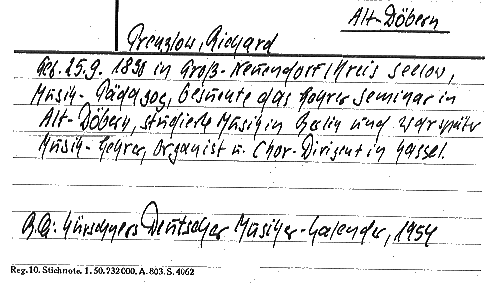 Alt-Döbern
Prenzlow, Richard
Geb. 25.9. 1890 in Groß-Neuendorf/Kreis Seelow,
Musik-Pädagog, besuchte das Lehrer seminar in
Alt-Döbern, studierte Musik in Berlin und war später
Musik-Lehrer, Organist u. Chor-Dirigent in Kassel.
B.A: Kürschners Deutscher Musiker-Kalender, 1954
Reg. 10. Stichnote. 1. 50. 732 000. A. 803. S. 4062